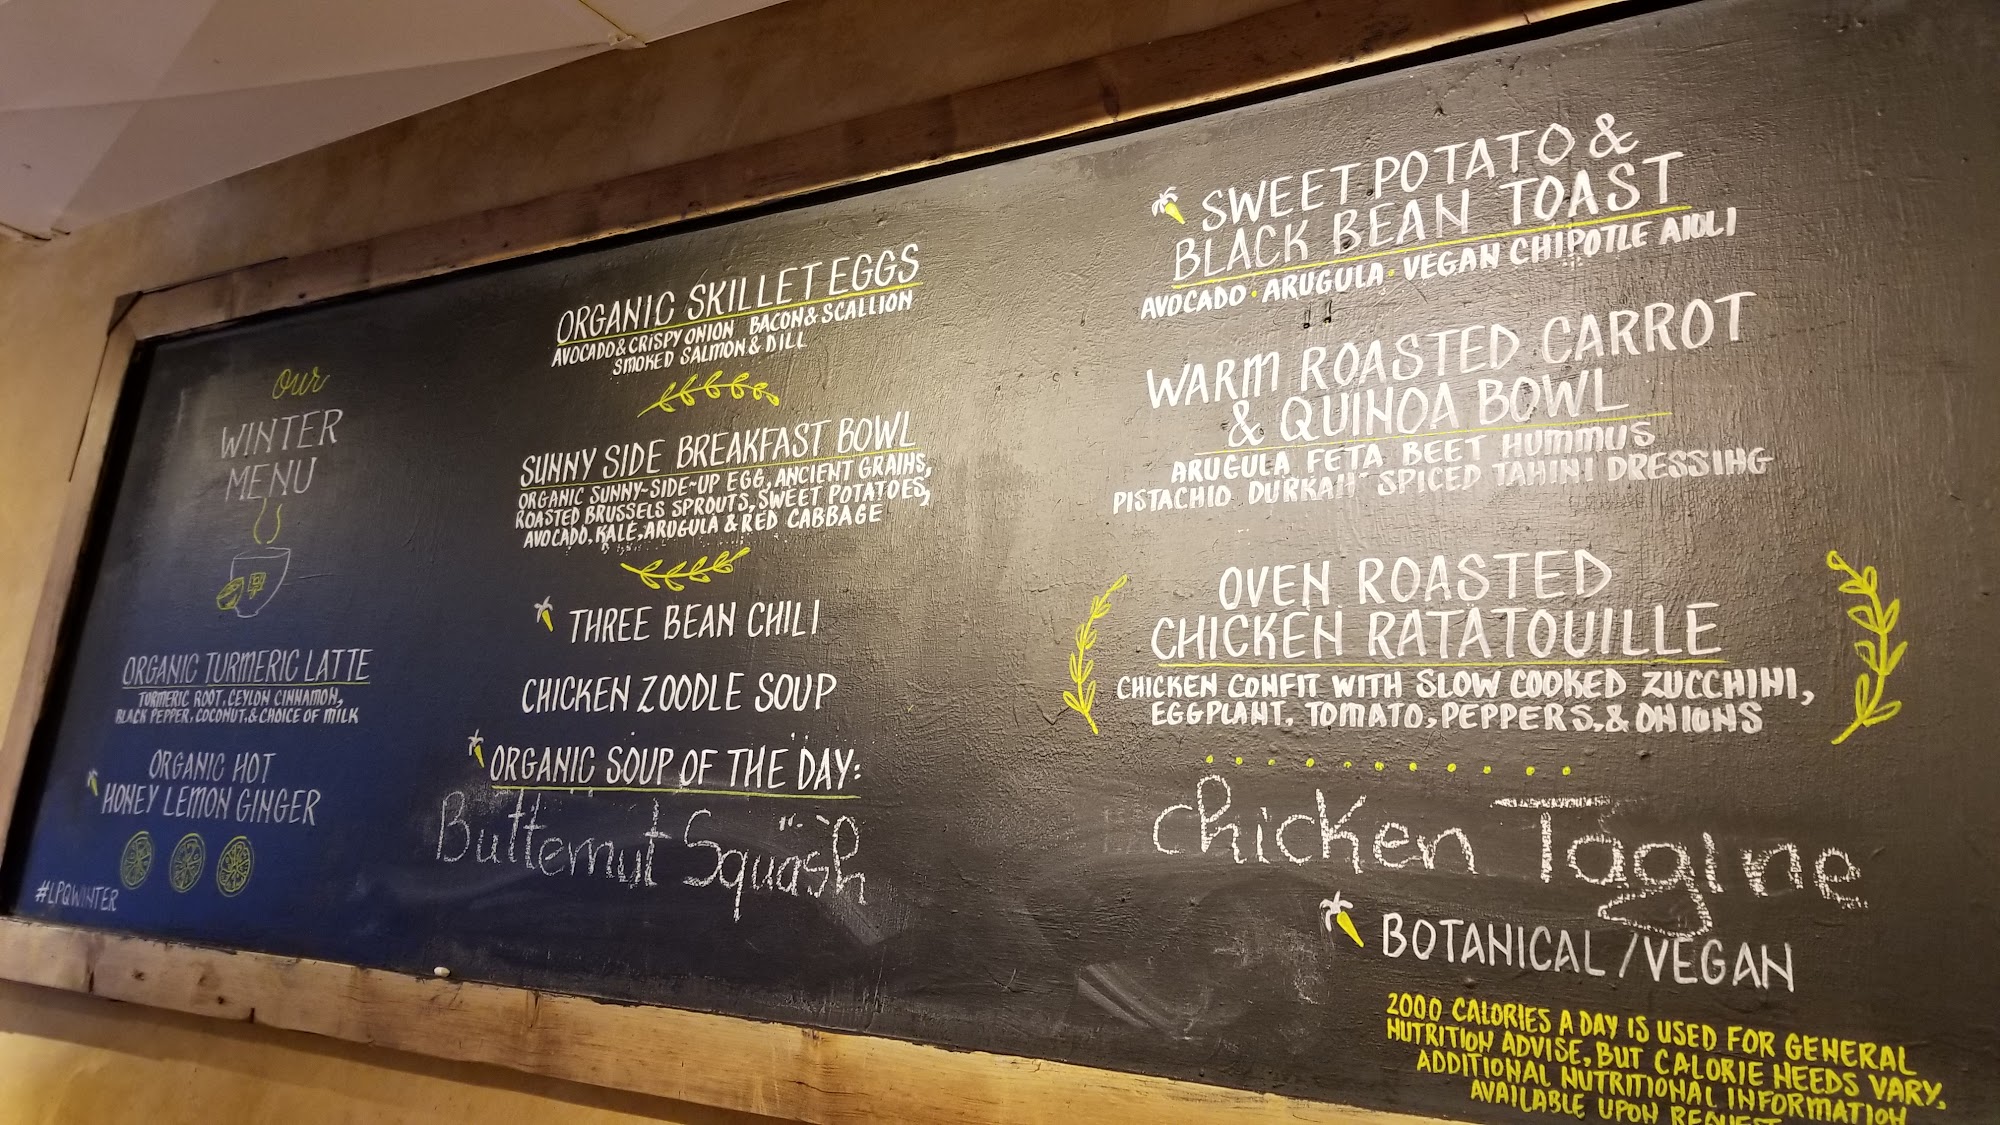 our
WINTER
MENU
ORGANIC TURMERIC LATTE
TURMERIC ROOT, CEYLON CINNAMON,
BLACK PEPPER, COCONUT, & CHOICE OF MILK
ORGANIC HOT
HONEY LEMON GINGER
#LPQWINTER
ORGANIC SKILLET EGGS
AVOCADO & CRISPY ONION BACON & SCALLION
SMOKED SALMON & DILL
SUNNY SIDE BREAKFAST BOWL
ORGANIC SUNNY-SIDE-UP EGG, ANCIENT GRAINS,
ROASTED BRUSSELS SPROUTS, SWEET POTATOES,
AVOCADO, KALE, ARUGULA & RED CABBAGE
THREE BEAN CHILI
CHICKEN ZOODLE SOUP
ORGANIC SOUP OF THE DAY:
Butternut Squash
SWEET POTATO &
BLACK BEAN TOAST
AVOCADO · ARUGULA · VEGAN CHIPOTLE AIOLI
WARM ROASTED CARROT
& QUINOA BOWL
ARUGULA FETA BEET HUMMUS
PISTACHIO DURKAH SPICED TAHINI DRESSING
OVEN ROASTED
CHICKEN RATATOUILLE
CHICKEN CONFIT WITH SLOW COOKED ZUCCHINI,
EGGPLANT, TOMATO, PEPPERS, & ONIONS
Chicken Tagine
BOTANICAL / VEGAN
2000 CALORIES A DAY IS USED FOR GENERAL
NUTRITION ADVISE, BUT CALORIE NEEDS VARY.
ADDITIONAL NUTRITIONAL INFORMATION
AVAILABLE UPON REQUEST